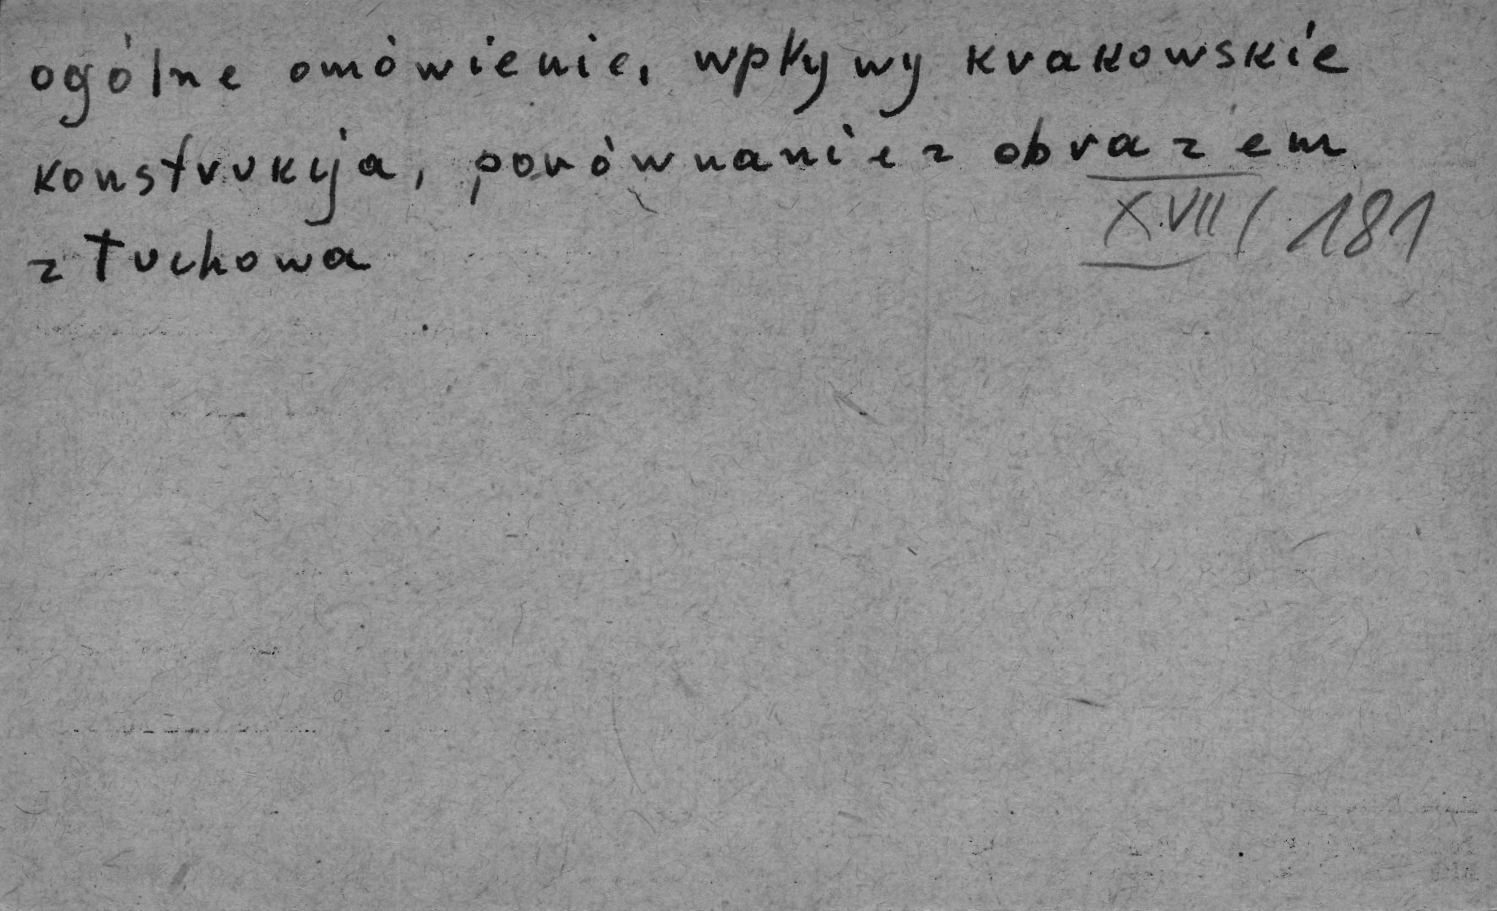 ogólne omówienie, wpływy krakowskie
konstrukcja, porównanie z obrazem
XVII/181
z Tuchowa